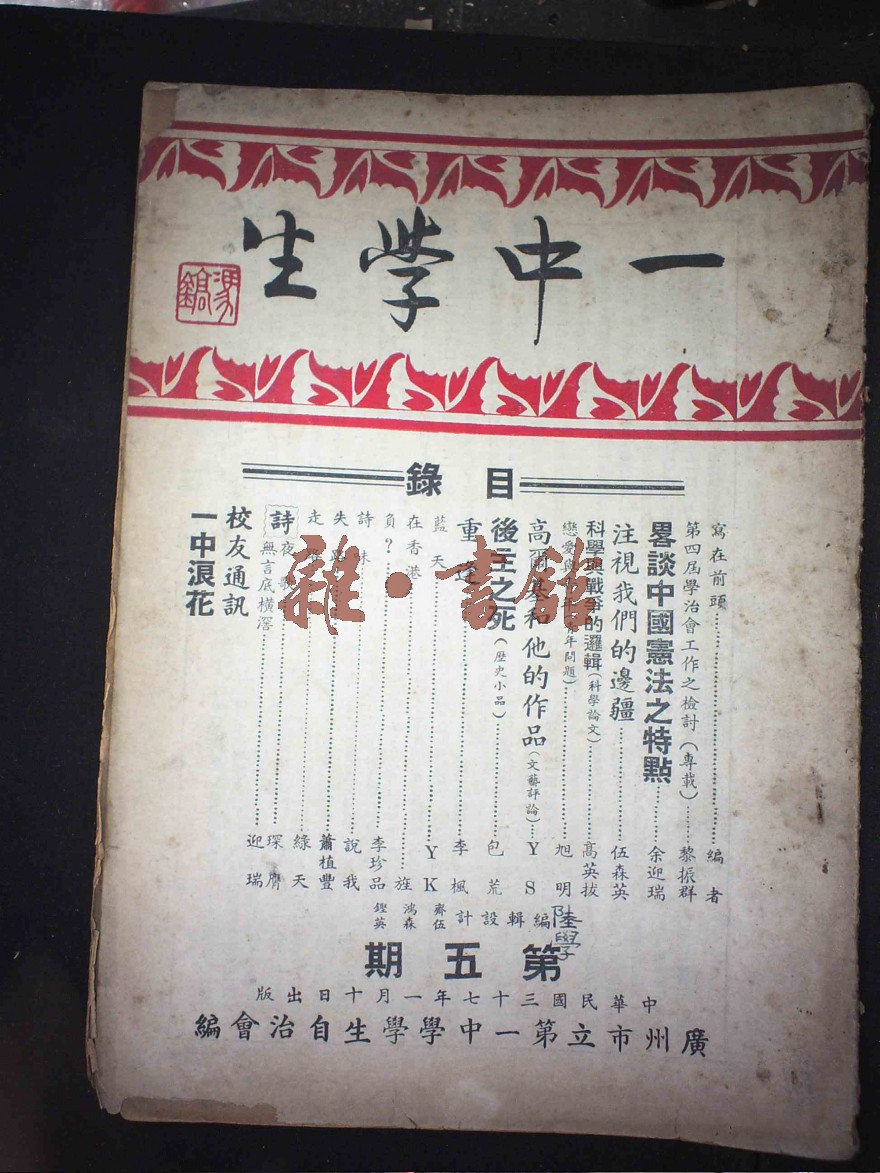 一中學生
馮鎬
目錄
寫在前頭……編者
第四屆學治會工作之檢討(專載)……黎振群
畧談中國憲法之特點……余迎瑞
注視我們的邊疆……伍森英
科學與戰爭的邏輯(科學論文)……高英拔
戀愛與 青年問題)……旭明
高爾基和他的作品(文藝評論)…YS
後主之死(歷史小品)……包荒
重逢……李楓
藍天……YK
在香港……旌
負?……李珍品
詩味……說我
失眠……蕭植豐
走路……綠天
詩
夜歌……琛膺
無言底橫濱……迎瑞
校友通訊
一中浪花
編輯設計
齊伍
鴻森
鏗英
陸學子
第五期
中華民國三十七年一月十日出版
廣州市立第一中學學生自治會編
雜·書館